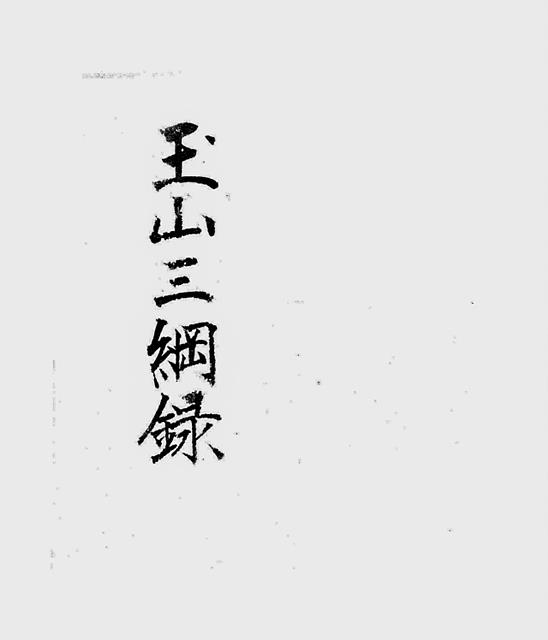 玉山三綱録